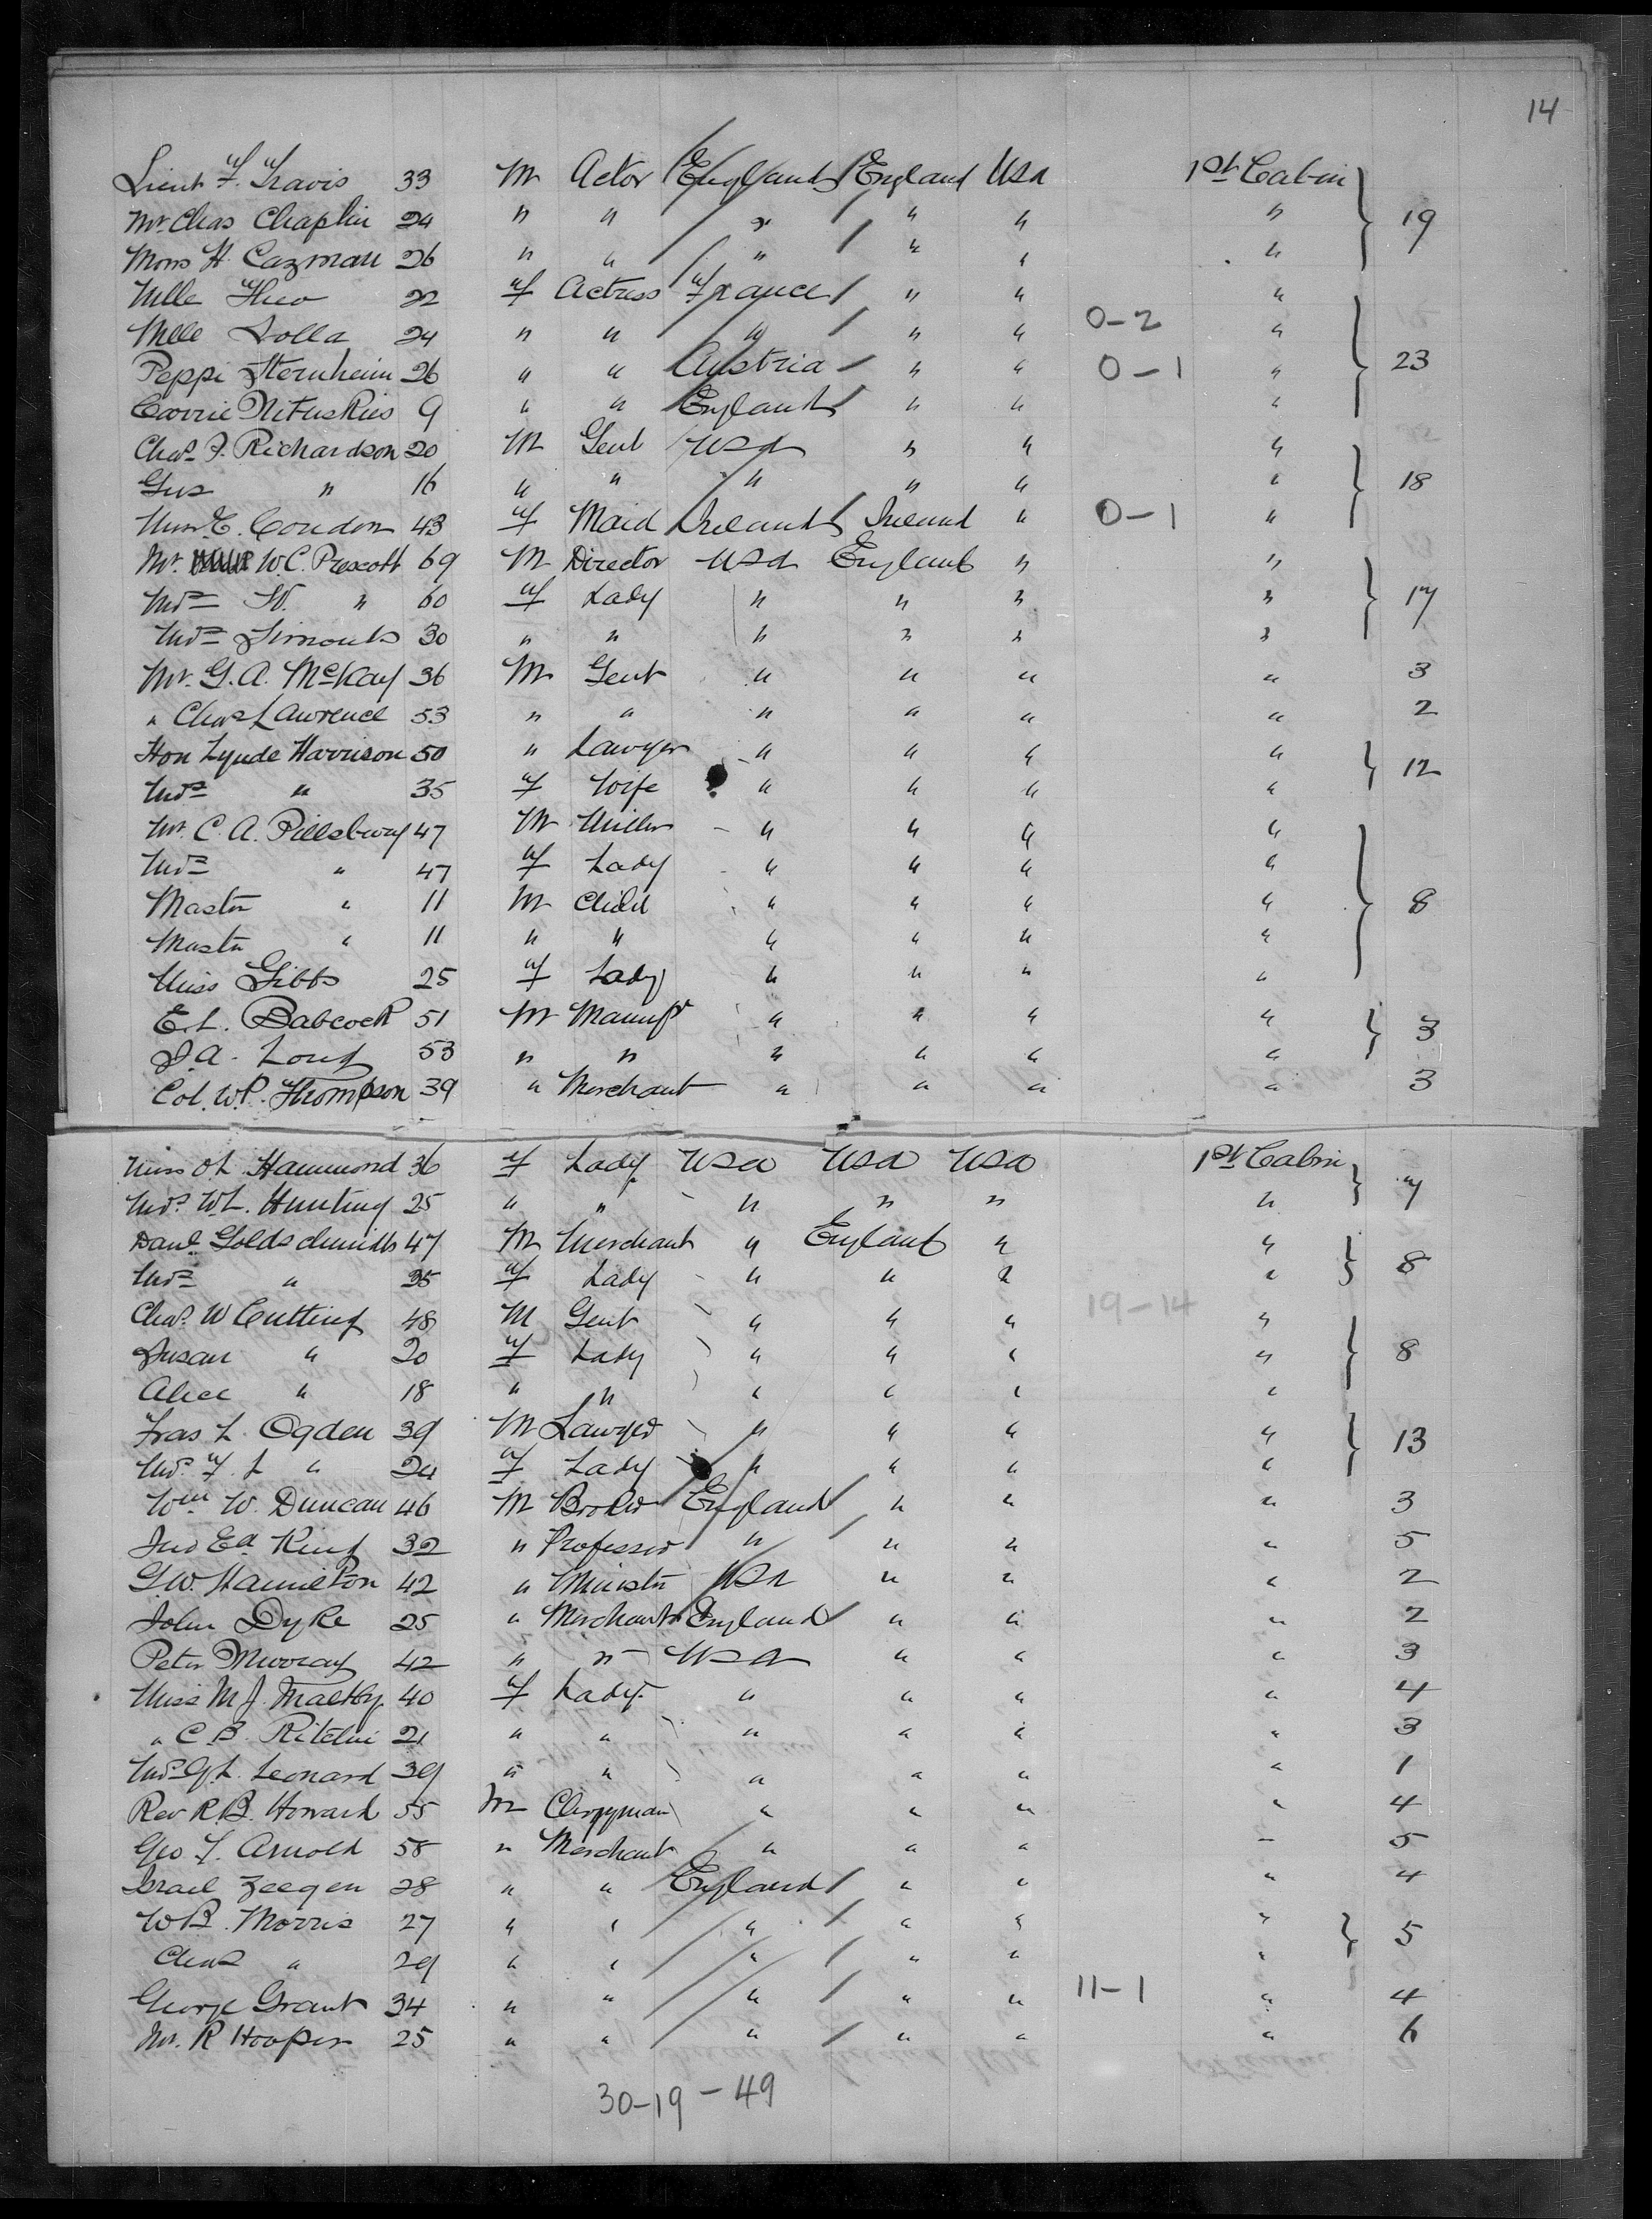 14
Lieut F. Travis 33 M Actor England England Usa 1st Cabin
Mr. Chas Chaplin 24 " " " " " " 19
Mons H. Cazman 26 " " " " " "
Mlle Theo 22 F Actress France " " "
Mlle Lolla 24 " " " " " 0-2 "
Peppi Sternheim 26 " " Austria " " 0-1 " 23
Carrie 9 " " England " " "
Chas. F. Richardson 20 M Gent USA " " "
Gus " 16 " " " " " " 18
E. Condon 43 F Maid Ireland Ireland " 0-1 "
Mr. W.C. Prescott 69 M Director USA England " "
Mrs W. " 60 F Lady " " " " 17
Mrs Simonds 30 " " " " " "
Mr. G.A. McKay 36 M Gent " " " " 3
" Chas Lawrence 53 " " " " " " 2
Hon Lynde Harrison 50 " Lawyer " " " "
Mrs " 35 F Wife " " " " 12
Mr. C.A. Pillsbury 47 M Miller " " " "
Mrs " 47 F Lady " " " "
Master " 11 M Child " " " " 8
Master " 11 " " " " " "
Miss Gibbs 25 F Lady " " " "
E.L. Babcock 51 M Manufr " " " "
J.A. Long 53 " " " " " " 3
Col. W.P. Thompson 39 " Merchant " " " " 3
Miss O L. Hammond 36 F Lady USA USA USA 1st Cabin
Mrs. W.L. Hunting 25 " " " " " " 7
Danl. Goldschmidt 47 M Merchant " England " "
Mrs " 35 F Lady " " " " 8
19-14
Chas. W Cutting 48 M Gent " " " "
Susan " 20 F Lady " " " " 8
Alice " 18 " " " " " "
Fras L. Ogden 39 M Lawyer " " " "
Mrs. F. L " 24 F Lady " " " " 13
Wm. W. Duncan 46 M Broker England " " " 3
Jno Ed. King 32 " Professor " " " " 5
G.W. Hamilton 42 " Minister USA " " " 2
John Dyke 25 " Merchant England " " " 2
Peter Murray 42 " " USA " " " 3
Miss M.J. Maltby 40 F Lady " " " " 4
" C.B. Ritchie 21 " " " " " " 3
Mrs G.L. Leonard 39 " " " " " " 1
Rev R.B. Howard 55 M Clergyman " " " " 4
Geo F. Arnold 58 " Merchant " " " - 5
Israel Zeegen 28 " " England " " " 4
W.B. Morris 27 " " " " " "
Chas " 29 " " " " " " 5
George Grant 34 " " " " " 11-1 " 4
Mr. R Hooper 25 " " " " " " 6
30-19-49